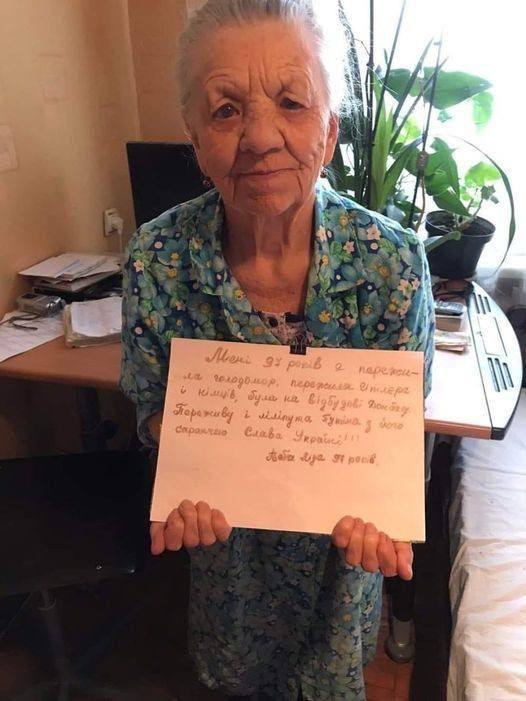 Мені 97 років я пережи-
ла голодомор, пережила Гітлера
і німців, була на відбудові Донбасу.
Переживу і ліліпута Путіна з його
саранчею Слава Україні!!!
Баба Ліза 97 років.